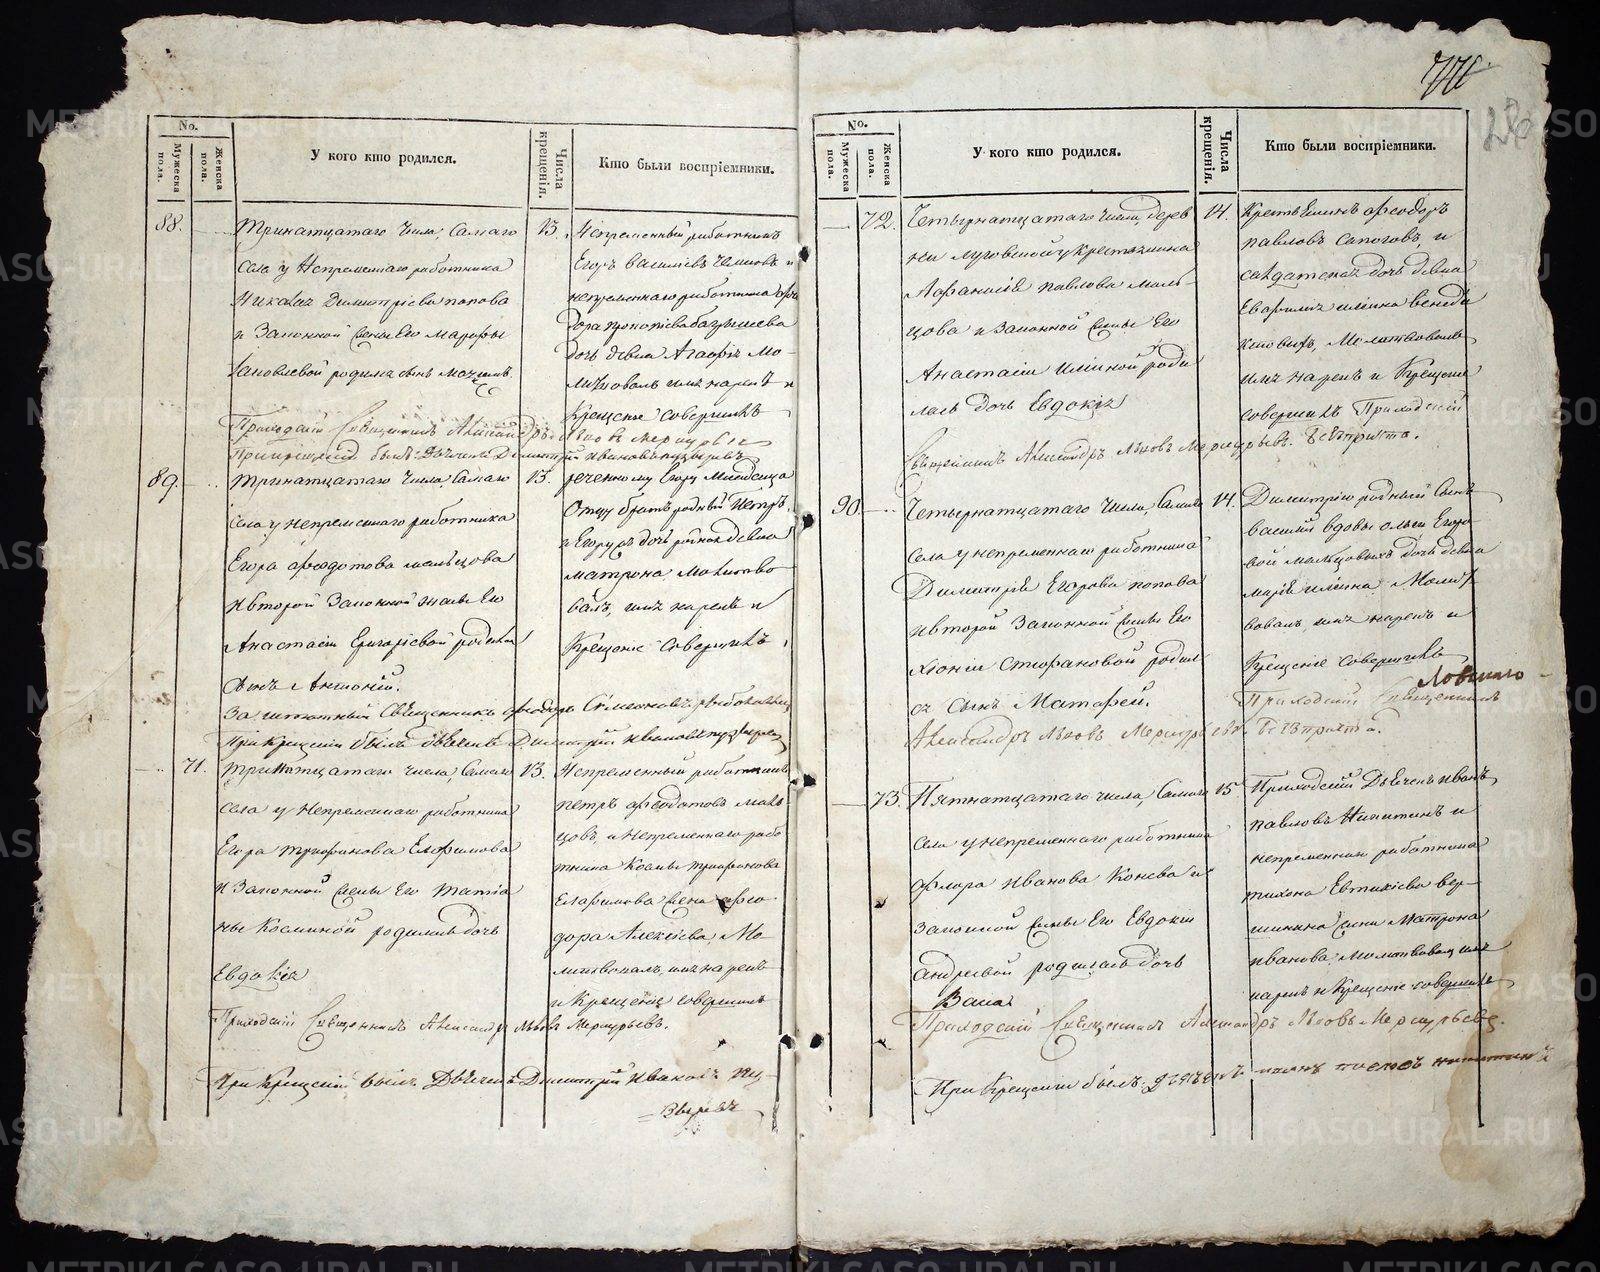 No.
Мужеска пола.
Женска пола.
У кого кто родился.
Числа крещенія.
Кто были воспріемники.
88.
Тринатцатаго числа, Самаго
села у Непременнаго работника
Димитріева попова
и Законной жены Его Марфы
Іаковлевой родился сынъ
13.
Непременный работникъ
Егоръ василіевъ и
непременнаго работника
дочь девка Агафія Мо-
имя нарекъ и
Крещеніе совершилъ
Приходскій Священникъ Александръ Львовъ Меркурьевъ
При крещеніи былъ Дьячекъ Димитрій Ивановъ Пузыревъ
89.
Тринатцатаго числа, Самаго
села у непременнаго работника
Егора федотова мальцова
и второй Законной жены Его
Анастасіи Григорьевой родился
сынъ Антоній.
13.
реченному Егору
Отцу братъ родный Петръ
и Егору дочь родная девка
матрона Молитво
валъ, имя нарекъ и
Крещеніе Совершилъ
Заштатный Священникъ Феодоръ Симеоновъ
При Крещеніи былъ дьячекъ Димитрій Ивановъ Пузыревъ
71.
Тринатцатаго числа, Самаго
села у Непременнаго работника
Егора трифонова Елфимова
и Законной жены Его татіа
ны Косминой родилась дочь
Евдокія
13.
Непременный работникъ
петръ федотовъ маль
цовъ, и Непременнаго рабо
тника Космы трифонова
Елфимова жена фео
дора Алексіева, Мо
литвовалъ, имя нарекъ
и Крещеніе совершилъ
Приходскій Священникъ Александръ Львовъ Меркурьевъ.
При Крещеніи былъ Дьячекъ Димитрій Ивановъ Пу-
зыревъ
No.
Мужеска пола.
Женска пола.
У кого кто родился.
Числа крещенія.
Кто были воспріемники.
72.
Четырнатцатаго числа, дерев
ни луговской у Крестьянина
Афанасія павлова маль-
цова и Законной жены Его
Анастасіи Ильиной роди
лась дочь Евдокія
14.
Крестьянинъ феодоръ
павловъ сапоговъ, и
салдатская дочь девка
Евфимія ильина
Молитвовалъ,
имя нарекъ и Крещеніе
совершилъ Приходскій
Священникъ Александръ Львовъ Меркурьевъ. Безъ причта.
90.
Четырнатцатаго числа, Самаго
села у непременнаго работника
Димитрія Егорова попова
и второй Законной жены Его
Хіоніи Стефановой родил
ся Сынъ Матфей.
14.
Димитрію родный Сынъ
василій вдовы ольги Егоро
вой мальцовыхъ дочь девка
марія ильина, Молит
вовалъ, имя нарекъ и
Крещеніе совершилъ
Приходскій Священникъ
Александръ Львовъ Меркурьевъ. Безъ причта.
73.
Пятнатцатаго числа, Самаго
села у непременнаго работника
флора Иванова Конева и
Законной жены Его Евдокіи
Андреевой родилась дочь
Васса
15
Приходскій Дьячекъ иванъ
павловъ Никитинъ и
непременнаго работника
тихона Евтихіева вер-
шинина жена Матрона
иванова, Молитвовалъ имя
нарекъ и Крещеніе совершилъ
Приходскій Священникъ Александръ Львовъ Меркурьевъ.
При Крещеніи былъ Дьячекъ иванъ павловъ никитинъ
METRIKI.GASO-URAL.RU